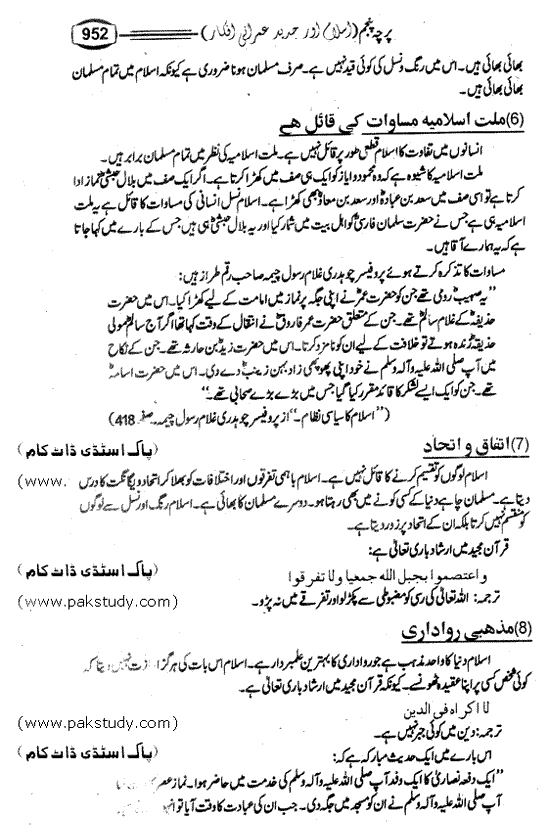 952 پرچہ پنجم (اسلام اور جدید عمرانی افکار)
بھائی بھائی ہیں۔ اس میں رنگ و نسل کی کوئی قید نہیں ہے۔ صرف مسلمان ہونا ضروری ہے کیونکہ اسلام میں تمام مسلمان
بھائی بھائی ہیں۔
(6) ملت اسلامیہ مساوات کی قائل ھے
انسانوں میں تفاوت کا اسلام قطعی طور پر قائل نہیں ہے۔ ملت اسلامیہ کی نظر میں تمام مسلمان برابر ہیں۔
ملت اسلامیہ کا شیوہ ہے کہ وہ محمود و ایاز کو ایک ہی صف میں کھڑا کرتا ہے۔ اگر ایک صف میں بلال حبشیؓ نماز ادا
کرتا ہے تو اسی صف میں سعد بن عبادہؓ اور سعد بن معاذؓ بھی کھڑا ہے۔ اسلام نسل انسانی کی مساوات کا قائل ہے یہ ملت
اسلامیہ ہی ہے جس نے حضرت سلمان فارسیؓ کو اہل بیت میں شمار کیا اور یہ بلال حبشیؓ ہی ہیں جس کے بارے میں کہا جاتا
ہے کہ یہ ہمارے آقا ہیں۔
مساوات کا تذکرہ کرتے ہوئے پروفیسر چوہدری غلام رسول چیمہ صاحب رقم طراز ہیں:
"یہ صہیبؓ رومی تھے جن کو حضرت عمرؓ نے اپنی جگہ پر نماز میں امامت کے لیے کھڑا کیا۔ اس میں حضرت
حذیفہؓ کے غلام سالمؓ تھے۔ جن کے متعلق حضرت عمر فاروقؓ نے انتقال کے وقت کہا تھا اگر آج سالمؓ مولی
حذیفہؓ زندہ ہوتے تو خلافت کے لیے ان کو نامزد کرتا۔ اس میں حضرت زیدؓ بن حارثہ تھے۔ جن کے نکاح
میں آپ صلی اللہ علیہ وآلہ وسلم نے خود اپنی پھوپھی زاد بہن زینبؓ دے دی۔ اس میں حضرت اسامہؓ
تھے۔ جن کو ایک ایسے لشکر کا قائد مقرر کیا گیا جس میں بڑے بڑے صحابی تھے۔"
("اسلام کا سیاسی نظام۔" از پروفیسر چوہدری غلام رسول چیمہ۔ صفحہ 418)
(7) اتفاق و اتحاد
پاک اسٹڈی ڈاٹ کام)
اسلام لوگوں کو تقسیم کرنے کا قائل نہیں ہے۔ اسلام باہمی تفرقوں اور اختلافات کو بھلا کر اتحاد و یگانگت کا درس (www.
دیتا ہے۔ مسلمان چاہے دنیا کے کسی کونے میں بھی رہتا ہو۔ دوسرے مسلمان کا بھائی ہے۔ اسلام رنگ اور نسل سے لوگوں
کو منقسم نہیں کرتا بلکہ ان کے اتحاد پر زور دیتا ہے۔
قرآن مجید میں ارشاد باری تعالیٰ ہے:
واعتصموا بحبل الله جمعيا ولا تفرقوا
(پاک اسٹڈی ڈاٹ کام)
ترجمہ: اللہ تعالیٰ کی رسی کو مضبوطی سے پکڑ لو اور تفرقے میں نہ پڑو۔
(www.pakstudy.com)
(8) مذھبی رواداری
اسلام دنیا کا واحد مذہب ہے جو رواداری کا بہترین علمبردار ہے۔ اسلام اس بات کی ہرگز اجازت نہیں دیتا کہ
کوئی شخص کسی پر اپنا عقیدہ ٹھونسے۔ کیونکہ قرآن مجید میں ارشاد باری تعالیٰ ہے۔
لا اكراه فى الدين
(www.pakstudy.com)
ترجمہ: دین میں کوئی جبر نہیں ہے۔
(پاک اسٹڈی ڈاٹ کام)
اس بارے میں ایک حدیث مبارکہ ہے کہ:
"ایک دفعہ نصاریٰ کا ایک وفد آپ صلی اللہ علیہ وآلہ وسلم کی خدمت میں حاضر ہوا۔ نماز عصر
آپ صلی اللہ علیہ وآلہ وسلم نے ان کو مسجد میں جگہ دی۔ جب ان کی عبادت کا وقت آیا تو